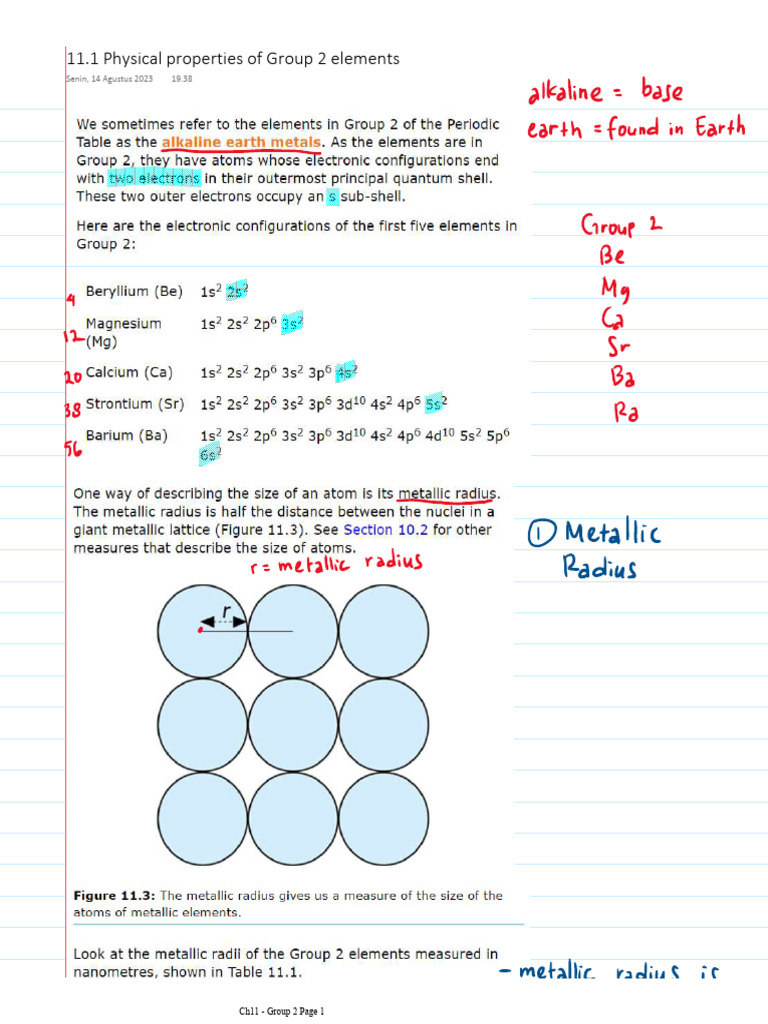 11.1 Physical properties of Group 2 elements
Senin, 14 Agustus 2023 19.38
alkaline = base
earth = found in Earth
We sometimes refer to the elements in Group 2 of the Periodic
Table as the alkaline earth metals. As the elements are in
Group 2, they have atoms whose electronic configurations end
with two electrons in their outermost principal quantum shell.
These two outer electrons occupy an s sub-shell.
Here are the electronic configurations of the first five elements in
Group 2:
Group 2
Be
Mg
Ca
Sr
Ba
Ra
4 Beryllium (Be) 1s² 2s²
12 Magnesium 1s² 2s² 2p⁶ 3s²
(Mg)
20 Calcium (Ca) 1s² 2s² 2p⁶ 3s² 3p⁶ 4s²
38 Strontium (Sr) 1s² 2s² 2p⁶ 3s² 3p⁶ 3d¹⁰ 4s² 4p⁶ 5s²
56 Barium (Ba) 1s² 2s² 2p⁶ 3s² 3p⁶ 3d¹⁰ 4s² 4p⁶ 4d¹⁰ 5s² 5p⁶
6s²
One way of describing the size of an atom is its metallic radius.
The metallic radius is half the distance between the nuclei in a
giant metallic lattice (Figure 11.3). See Section 10.2 for other
measures that describe the size of atoms.
① Metallic
Radius
r = metallic radius
r
Figure 11.3: The metallic radius gives us a measure of the size of the
atoms of metallic elements.
Look at the metallic radii of the Group 2 elements measured in
nanometres, shown in Table 11.1.
- metallic radius is
Ch11 - Group 2 Page 1